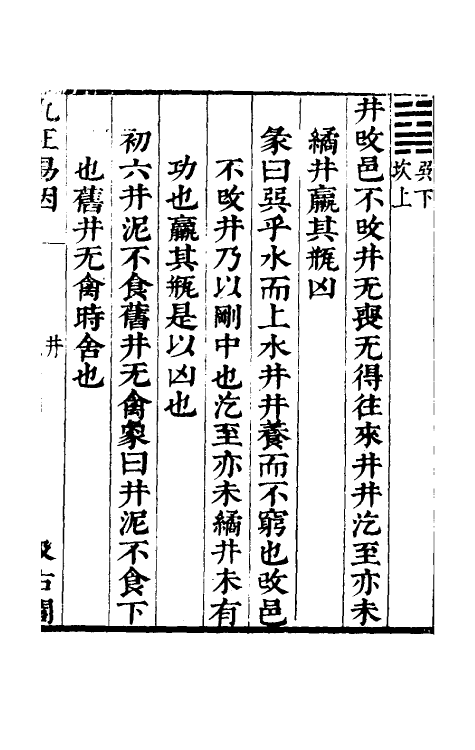 巽下
坎上
井改邑不改井无喪无得往來井井汔至亦未
繘井羸其瓶凶
彖曰巽乎水而上水井井養而不窮也改邑
不改井乃以剛中也汔至亦未繘井未有
功也羸其瓶是以凶也
初六井泥不食舊井无禽象曰井泥不食下
也舊井无禽時舍也
九正易因
井
汲古閣